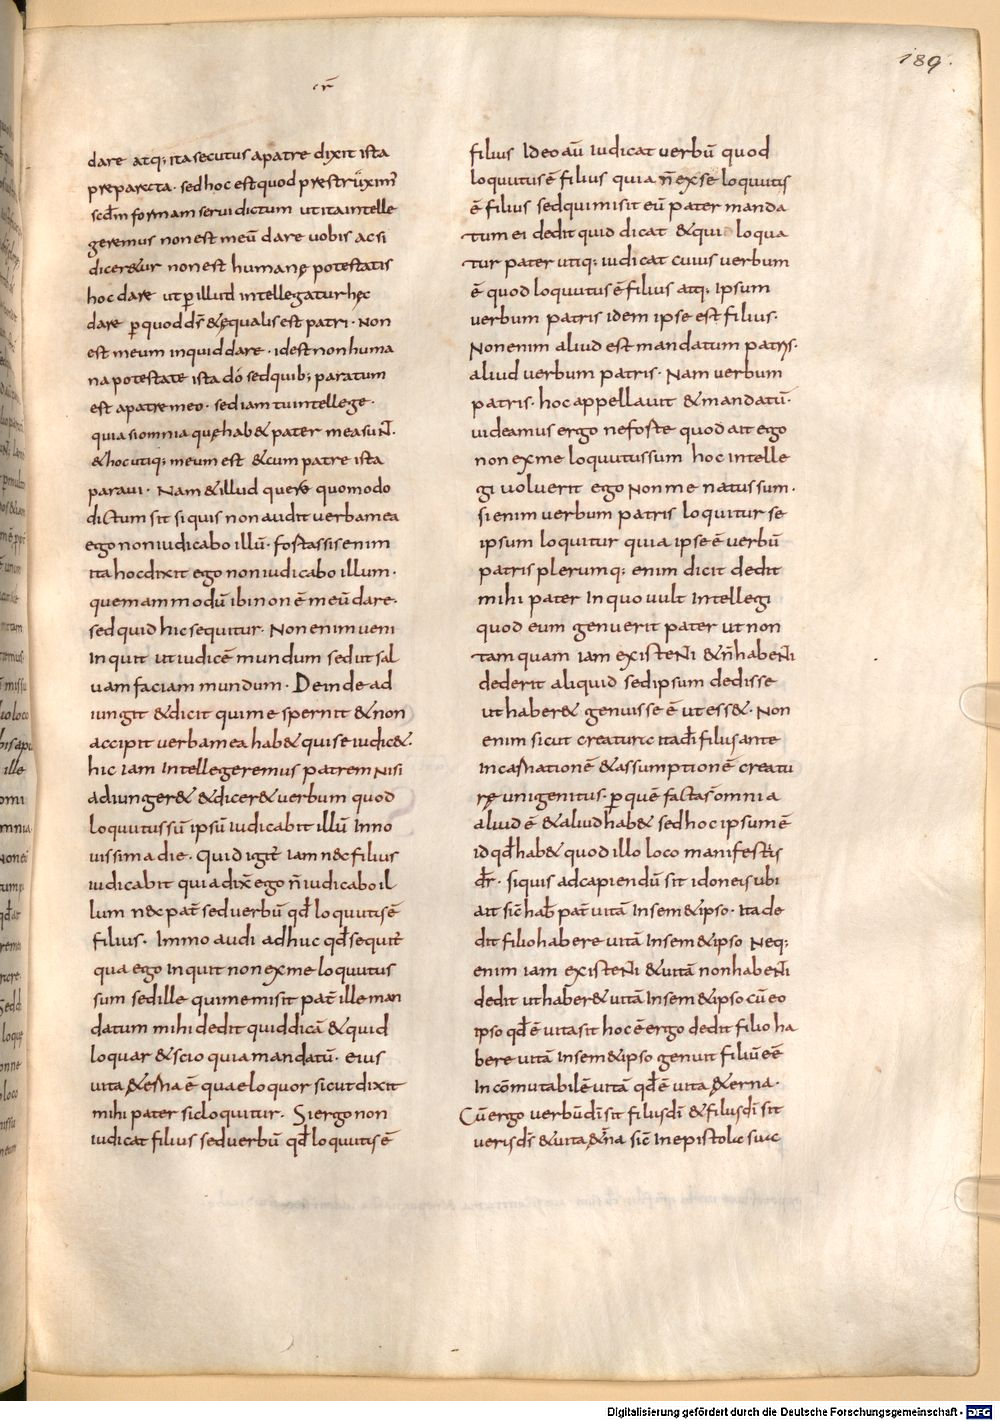 189.
dare atq; ita secutus apatre dixit ista
preparata · sed hoc est quod prestruximꝰ
scdm formam servi dictum ut ita intelle
geremus non est meū dare uobis ac si
dicer&ur non est humanę potestatis
hoc dare ut ꝑ illud intellegatur hęc
dare ꝑ quod dš & ęqualis est patri · Non
est meum inquid dare · id est non huma
na potestate ista dó sed quib; paratum
est apatre meo · sed iam tu intellege ·
quia si omnia quę hab& pater mea suN̄.
& hoc utiq; meum est & cum patre ista
paraui · Nam & illud quere quomodo
dictum sit si quis non audit uerba mea
ego non iudicabo illū · fostassis enim
ita hoc dixit ego non iudicabo illum ·
quemammodū ibi non ē meū dare ·
sed quid hic sequitur · Non enim ueni
Inquit ut iudicē mundum sed ut sal
uam faciam mundum · Deinde ad
iungit & dicit qui me spernit & non
accipit uerba mea hab& qui se iudic&.
hic iam Intellegeremus patrem Nisi
adiunger& & dicer& uerbum quod
loquutus sū ipsū iudicabit illū Inno
uissima die · Quid igit̄ iam nec filius
iudicabit quia dix̄ ego n̄ iudicabo il
lum nec pat̄ sed uerbū qđ loquutus ē
filius · Immo audi adhuc qđ sequit̄
qua ego Inquit non ex me loquutus
sum sed ille qui me misit pat̄ ille man
datum mihi dedit quid dicā & quid
loquar & scio quia mandatū · eius
uita &erna ē quae loquor sicut dixit
mihi pater sic loquitur · Si ergo non
iudicat filius sed uerbū qđ loquutus ē
filius Ideo aū iudicat uerbū quod
loquutus ē filius quia n̄ ex se loquutus
ē filius sed qui misit eū pater manda
tum ei dedit quid dicat & quid loqua
tur pater utiq; iudicat cuius uerbum
ē quod loquutus ē filius atq; Ipsum
uerbum patris idem ipse est filius ·
Non enim aliud est mandatum patris ·
aliud uerbum patris · Nam uerbum
patris · hoc appellauit & mandatū ·
uideamus ergo ne foste quod ait ego
non ex me loquutus sum hoc intelle
gi uoluerit ego Non me natus sum ·
si enim uerbum patris loquitur se
ipsum loquitur quia ipse ē uerbū
patris plerumq; enim dicit dedit
mihi pater In quo uult Intellegi
quod eum genuerit pater ut non
tam quam iam existeNti & n̄ habeNti
dederit aliquid sed ipsum dedisse
ut haber& genuisse ē ut ess& · Non
enim sicut creatura ita dī filius ante
Incarnationē & assumptionē creatu
rę unigenitus · ꝑ quē facta s̄ omnia
aliud ē & aliud hab& sed hoc ipsum ē
id qđ hab& quod illo loco manifestis
dr̄ · si quis ad capiendū sit idoneis ubi
ait sic̄ hab̄ pat̄ uitā In sem&ipso · Ita de
dit filio habere uitā In sem&ipso Neq;
enim iam existeNti & uitā non habeNti
dedit ut haber& uitā In sem&ipso cū eo
ipso qđ ē uita sit hoc ē ergo dedit filio ha
bere uitā In sem&ipso genuit filiū eē
Incōmutabilē uitā qđ ē uita &erna ·
Cū ergo uerbū dī sit filius dī & filius dī sit
uerus dš & uita &n̄a sic̄ In epistola sua